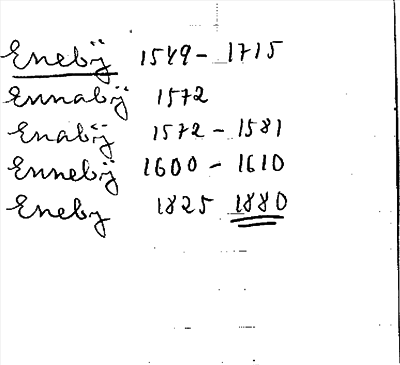 Enebÿ 1549 - 1715
Ennabÿ 1572
Enabÿ 1572 - 1581
Ennebÿ 1600 - 1610
Eneby 1825 1880